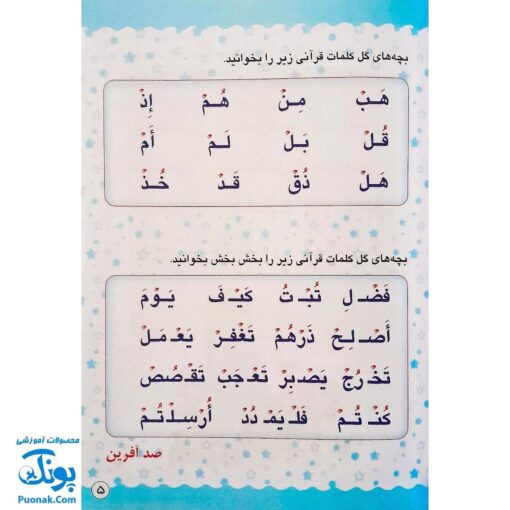 بچه‌های گل کلمات قرآنی زیر را بخوانید.
هَبْ مِنْ هُمْ إِذْ
قُلْ بَلْ لَمْ أَمْ
هَلْ ذُقْ قَدْ خُذْ
بچه‌های گل کلمات قرآنی زیر را بخش بخش بخوانید.
فَضْلِ تُبْتُ كَيْفَ يَوْمَ
أَصْلِحْ ذَرْهُمْ تَغْفِرْ يَعْمَلْ
تَخْرُجْ يَصْبِرْ تَعْجَبْ تَقْصُصْ
كُنْتُمْ فَلْيَمْدُدْ أُرْسِلْتُمْ
صد آفرین
۵
محصولات آموزشی
پونک
Puonak.Com